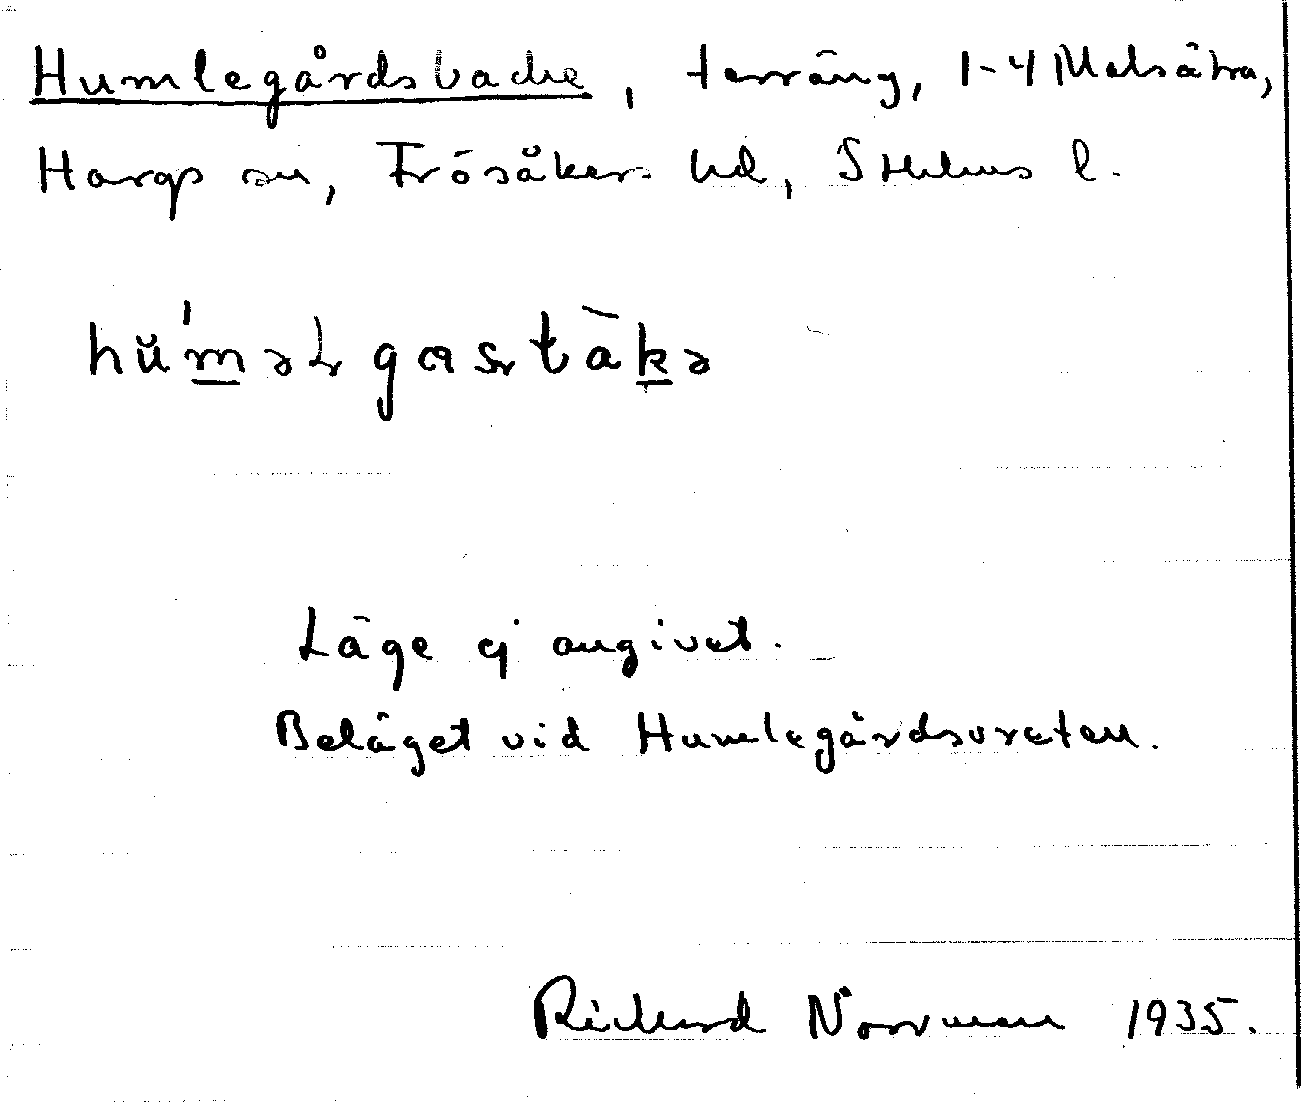 Humlegårdsbacke, terräng, 1-4 Malsätra,
Hargs sn, Frösåkers hd, Sthlms l.
hŭ'm̲əɫgasɽtàk̲ə
Läge ej angivet.
Beläget vid Humlegårdsvreten.
Richard Norrman 1935.